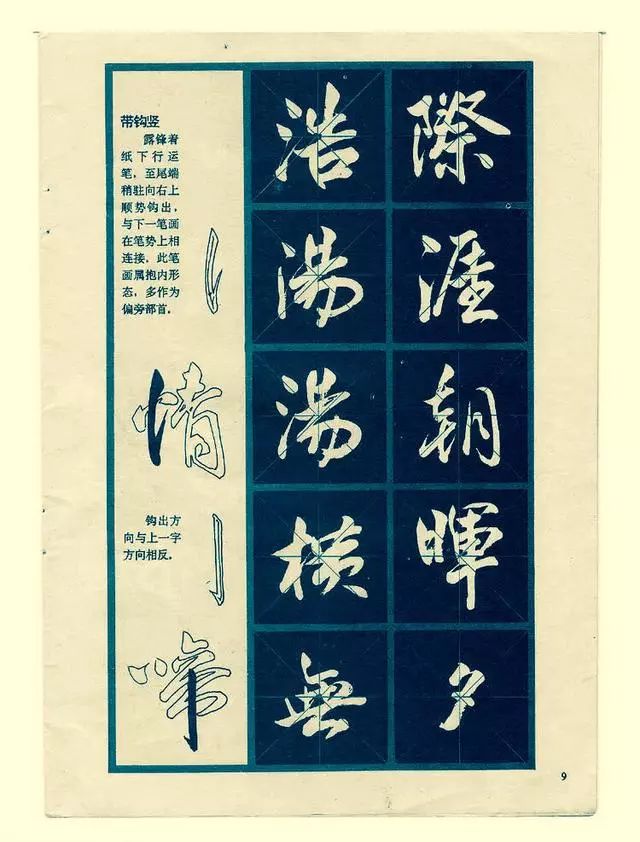 带钩竖
露锋着
纸下行运
笔，至尾端
稍驻向右上
顺势钩出，
与下一笔画
在笔势上相
连接，此笔
画属抱内形
态，多作为
偏旁部首。
情
钩出方
向与上一字
方向相反。
啼
浩湯湯横無
際涯朝暉夕
9